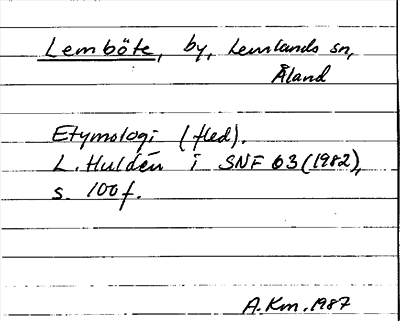 Lemböte, by, Lemlands sn,
Åland
Etymologi (fled).
L. Huldén i SNF 63 (1982),
s. 100 f.
A. Km. 1987